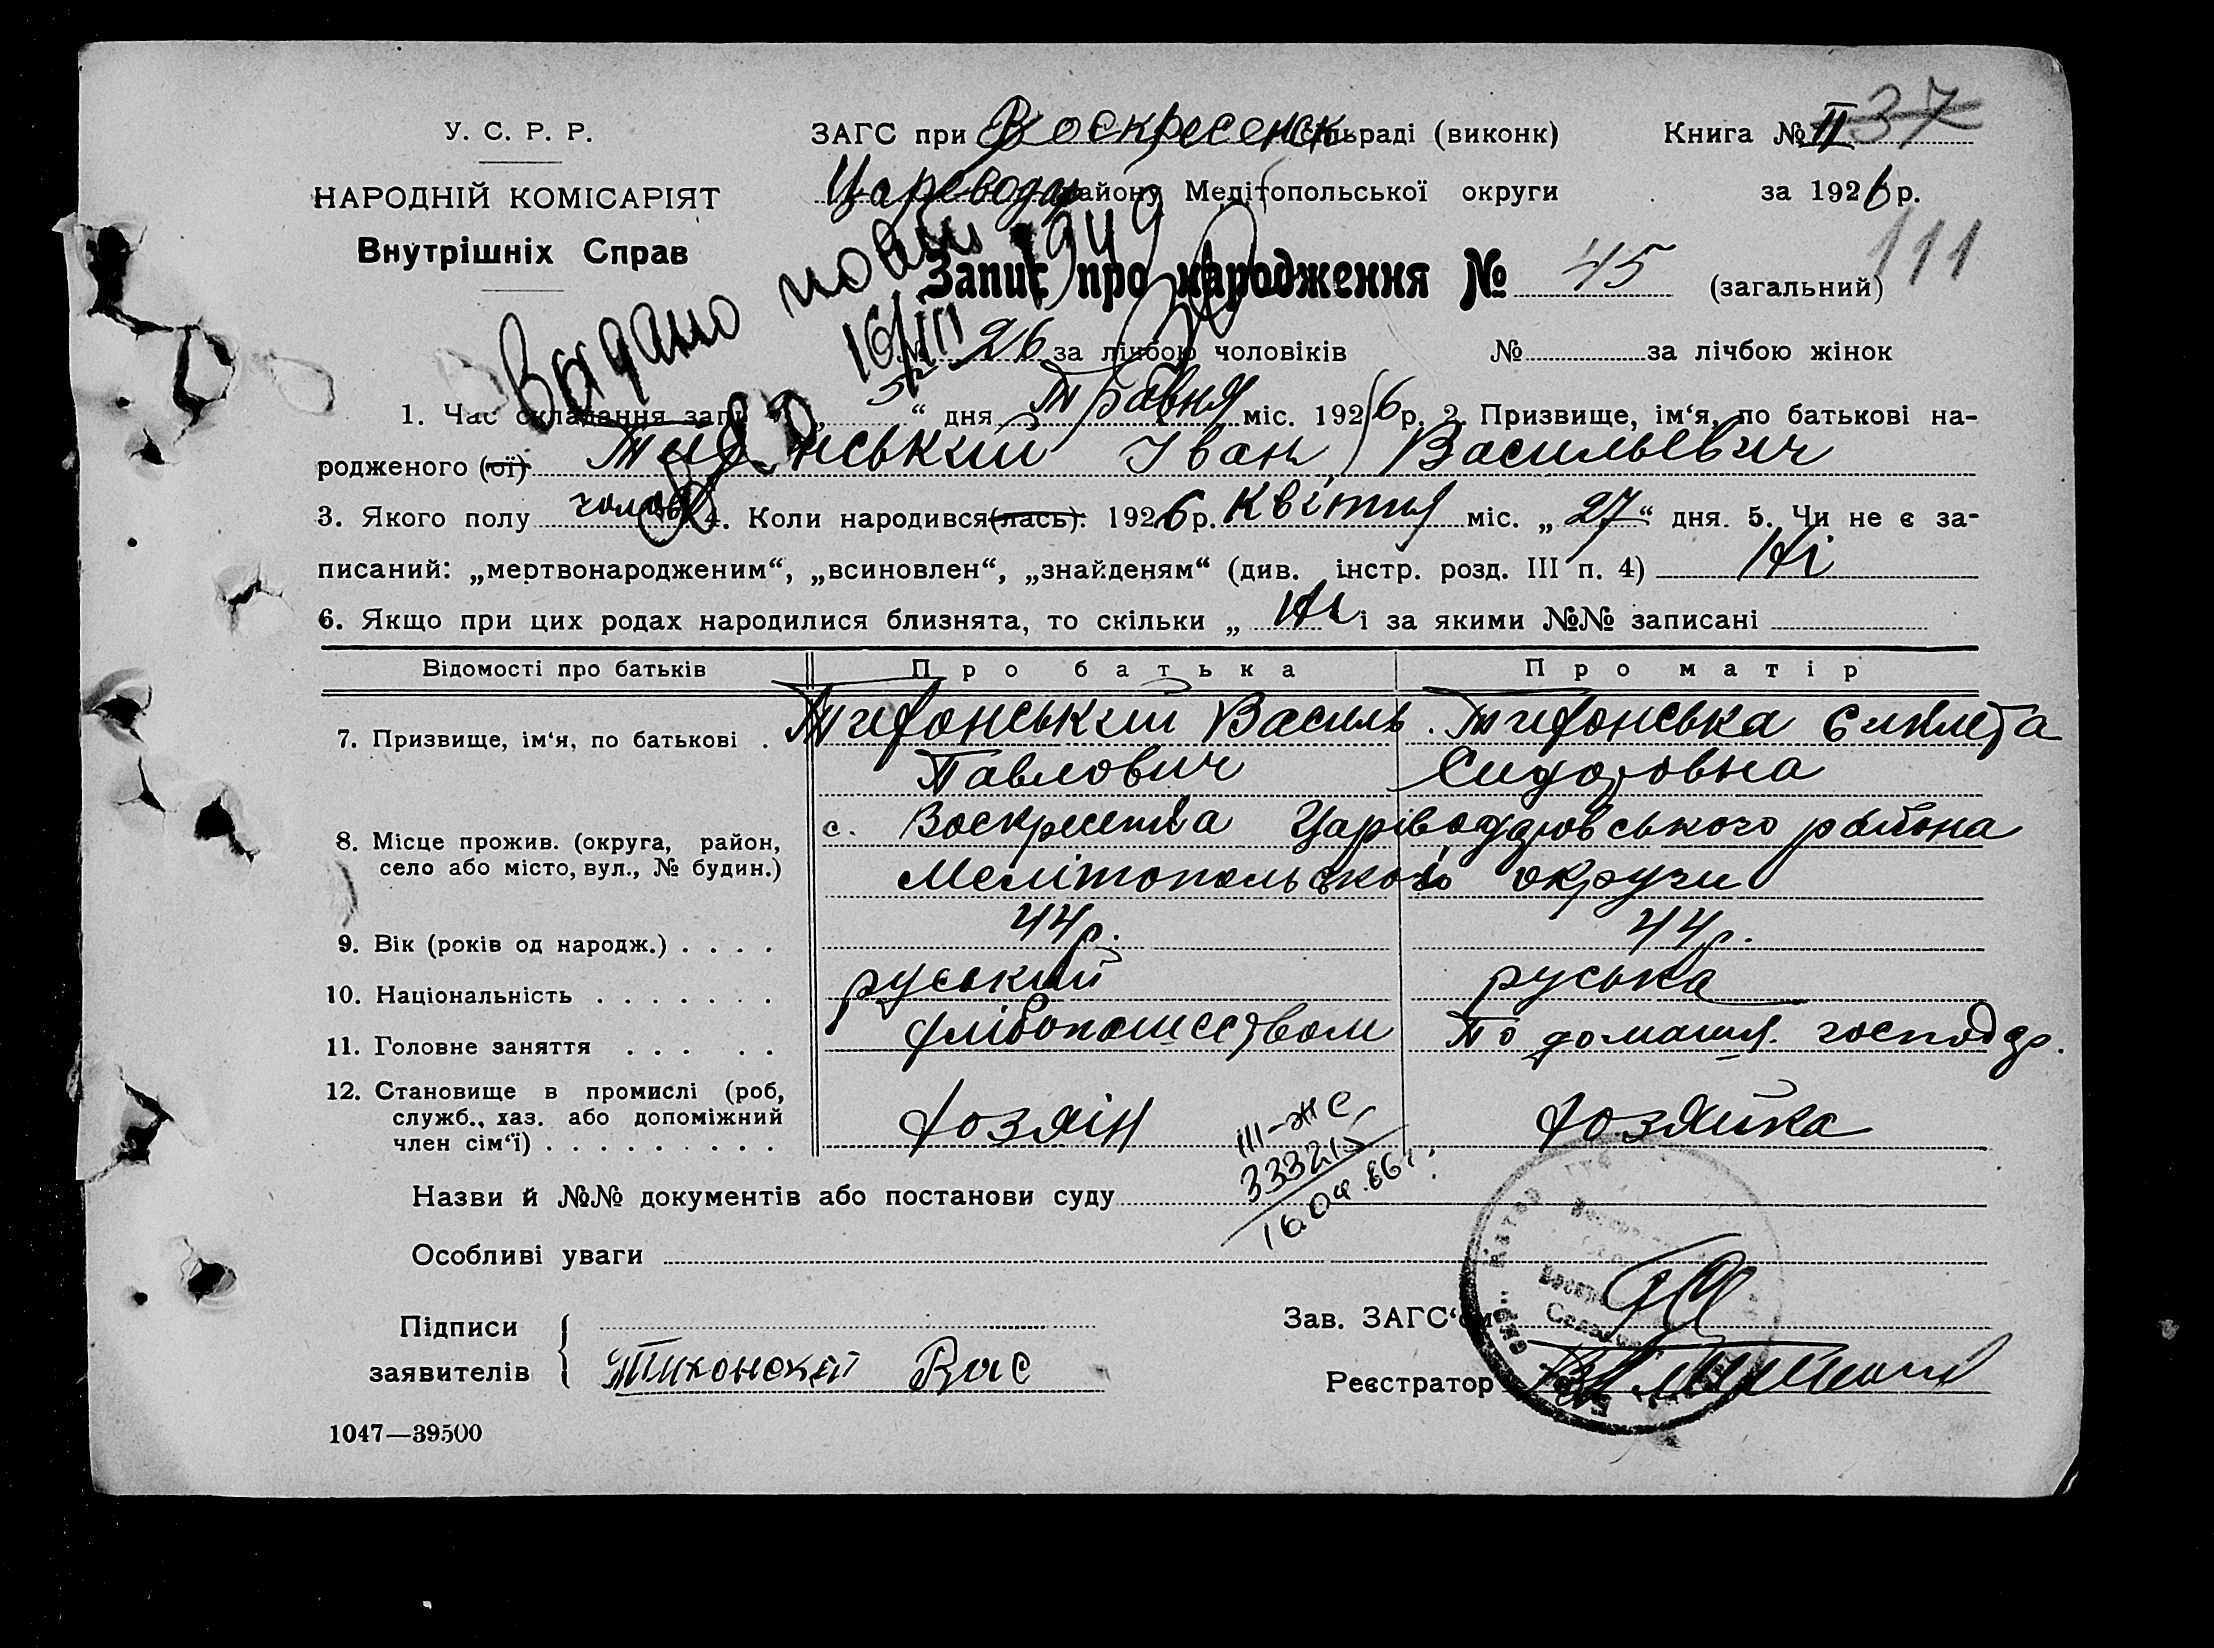 У. С. Р. Р.
НАРОДНІЙ КОМІСАРІЯТ
Внутрішніх Справ
ЗАГС при Воскресенск сільраді (виконк)
Царевода району Мелітопольської округи
Книга № II 37
за 1926 р.
111
Запис про народження № 45 (загальний)
№ 26 за лічбою чоловіків № за лічбою жінок
Видано повт
16/III 1949
1. Час складання запису „5“ дня Травня міс. 1926 р. 2. Призвище, ім‘я, по батькові на-
родженого (ої) Тихонський Іван Васильевич
3. Якого полу чолов 4. Коли народився (лась). 1926 р. Квітня міс. „27“ дня. 5. Чи не є за-
писаний: „мертвонародженим“, „всиновлен“, „знайденям“ (див. інстр. розд. III п. 4) Ні
6. Якщо при цих родах народилися близнята, то скільки „ Ні і за якими №№ записані
Відомості про батьків Про батька Про матір
7. Призвище, ім‘я, по батькові . Тихонський Василь Тихонська
Павлович Сидоровна
8. Місце прожив. (округа, район,
село або місто, вул., № будин.)
с. Воскресенка Царіводдровського района
Мелітопольської округи
9. Вік (років од народж.) . . . . 44 р. 44 р.
10. Національність . . . . . . . руський руська
11. Головне заняття . . . . . хлібопашеством По домашн. господар.
12. Становище в промислі (роб,
служб., хаз. або допоміжний
член сім‘ї) . . . . . . . . . Хозяін Хозяйка
III-ЖС
333215
16.04.86г.
Назви й №№ документів або постанови суду
Особливі уваги
Підписи
заявителів
Тихонский Вас
Зав. ЗАГС‘ом
Реєстратор
1047—39500